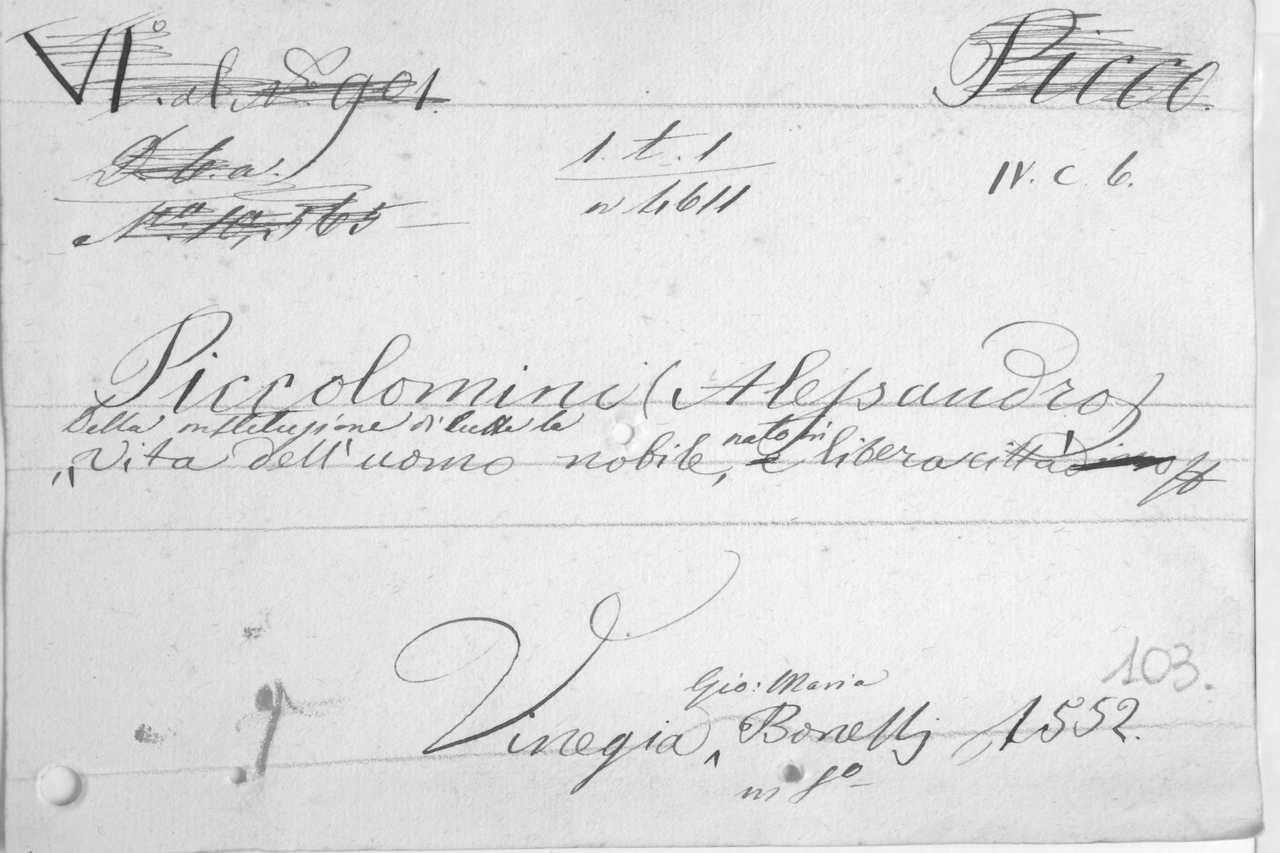 VI.° al N° 901.
Picco.
D. b. a.
1. t. 1
IV. c 6.
N.° 10,565
n 4611
Piccolomini (Alessandro)
Della institujione di tutta la
nato in
„Vita dell'uomo nobile, e libera cittadino
103.
Gio: Maria
Vinegia, Bonellj, 1552.
in 8°